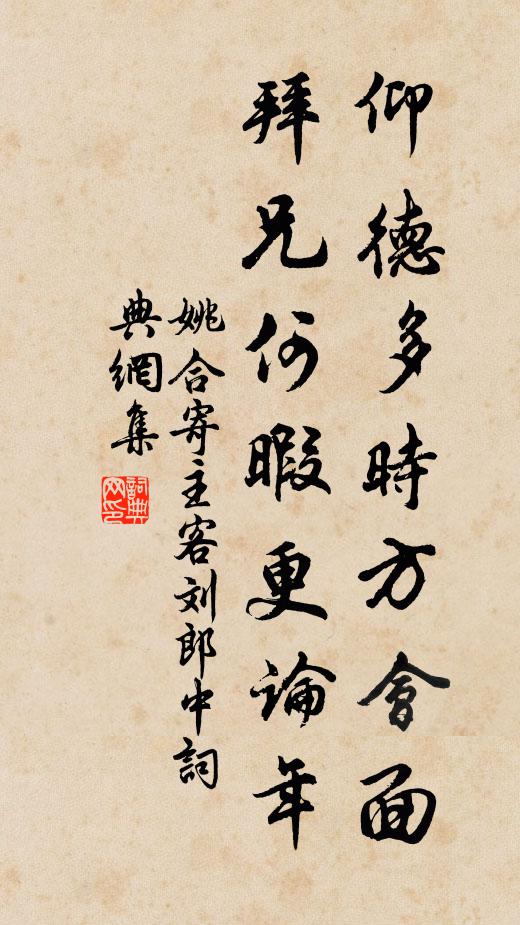 仰德多時方會面
拜兄何暇更論年
姚合寄主客刘郎中詞
典網集
詞典网印